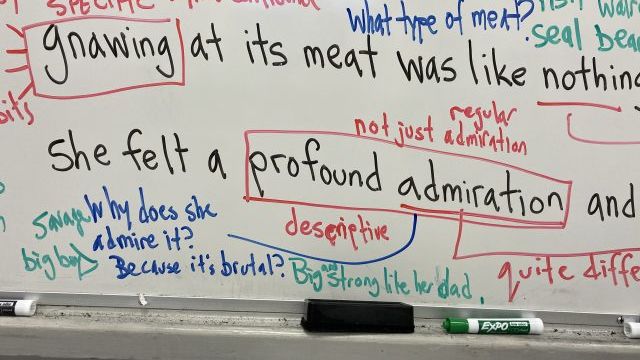 SPECIFIC
What type of meat?
seal
gnawing at its meat was like nothing
bits
not just regular admiration
She felt a profound admiration and
descriptive
Savage
big boy
Why does she
admire it?
Because it's brutal?
Big and strong like her dad.
quite
EXPO